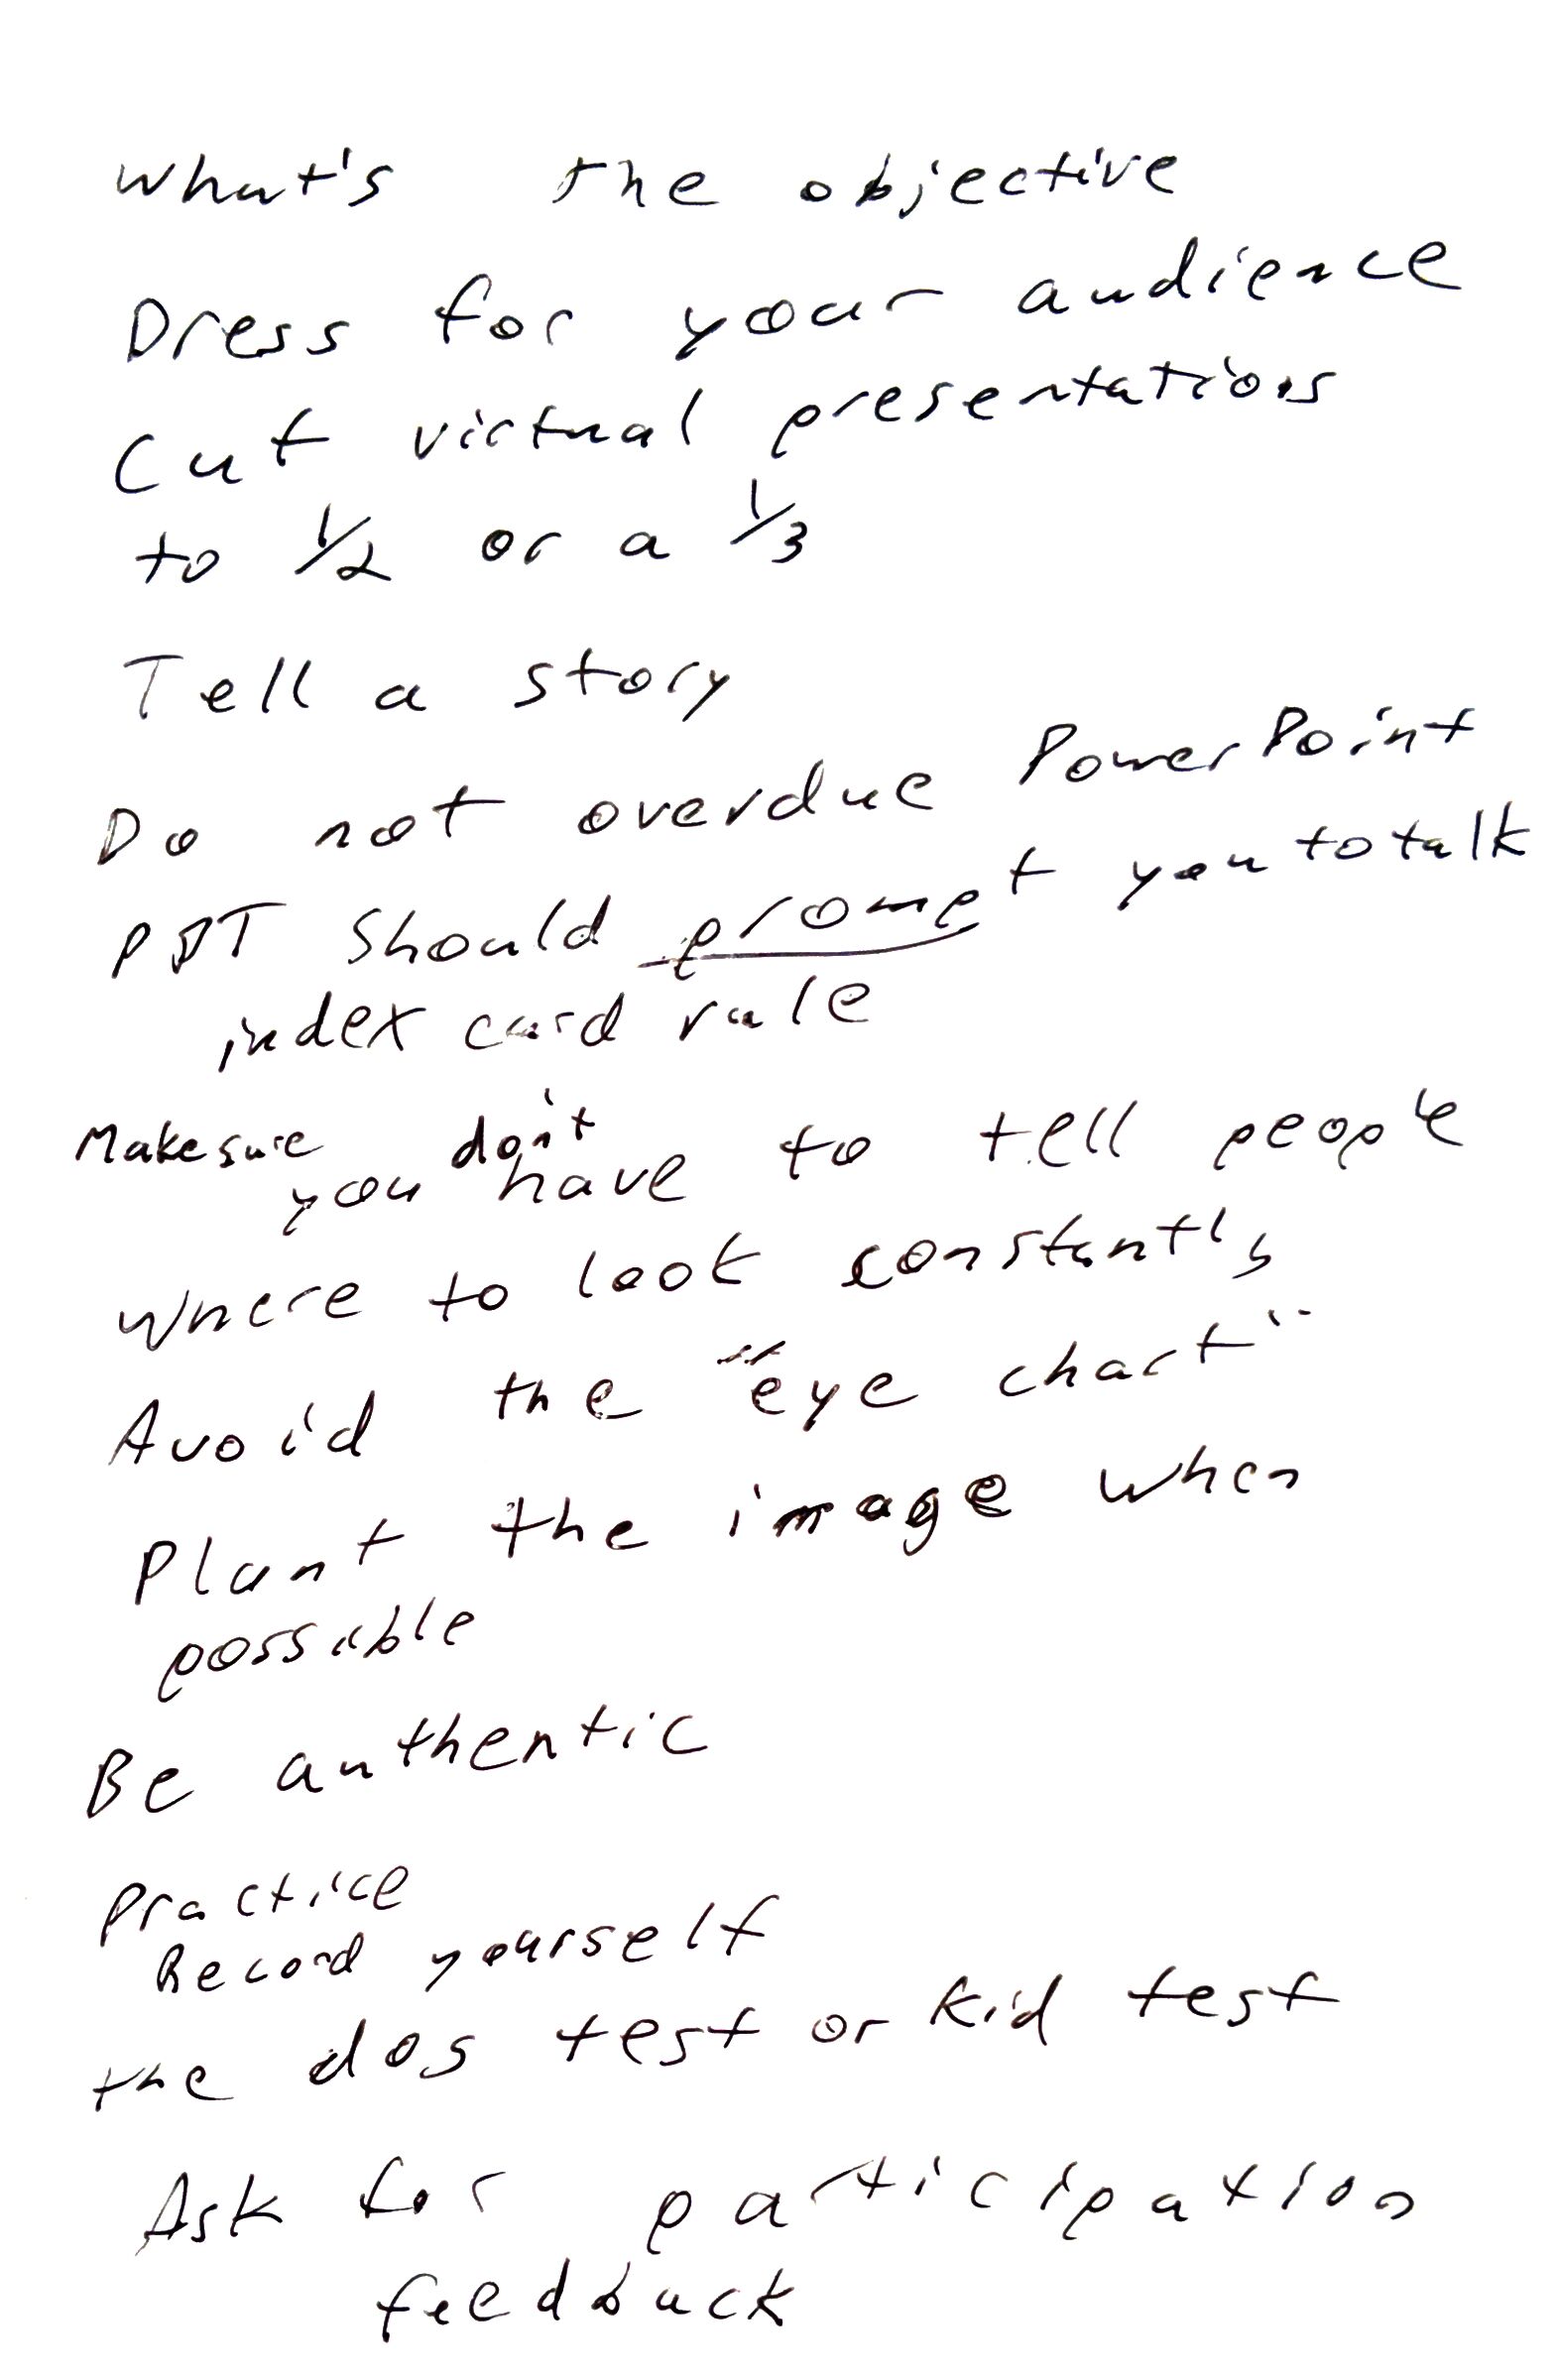 What's the objective
Dress for your audience
Cut virtual presentations
to 1/2 or a 1/3
Tell a story
Do not overdue PowerPoint
PPT should prompt you to talk
index card rule
Make sure you don't have to tell people
where to look constantly
Avoid the "eye chart"
Plant the image when
possible
Be authentic
Practice
Record yourself
the dog test or kid test
Ask for participation
feedback